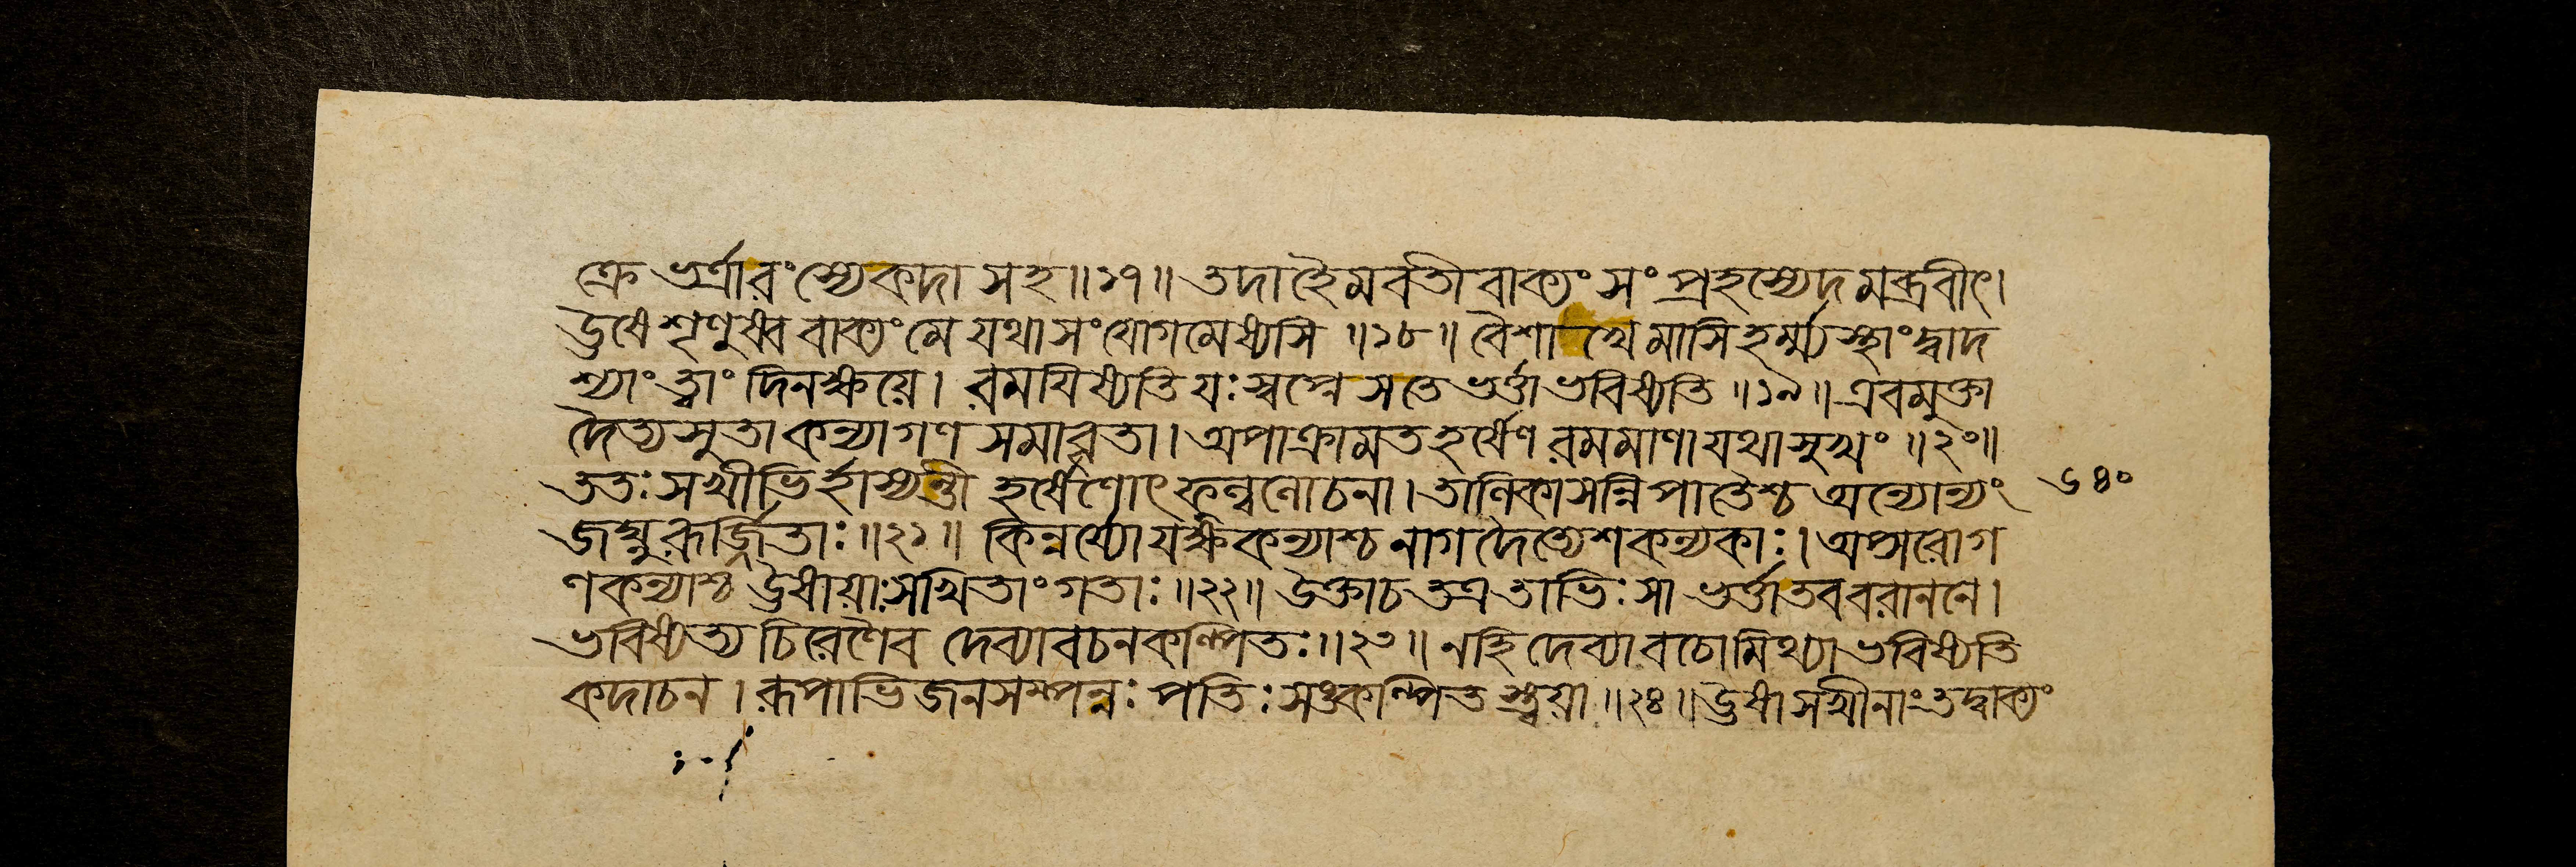 ক্রে ভর্ত্রা রংস্যেকদা সহ॥১৭॥ তদা হৈমবতী বাক্যং সংপ্রহস্যেদমব্রবীৎ।
উষে শৃণুষ্ব বাক্যং মে যথা সংযোগমেষ্যসি ॥১৮॥ বৈশাখে মাসি হর্ম্ম্যস্থাং দ্বাদ
শ্যাং ত্বাং দিনক্ষয়ে। রময়িষ্যতি যঃ স্বপ্নে স তে ভর্ত্তা ভবিষ্যতি ॥১৯॥ এবমুক্তা
দৈত্যসুতা কন্যাগণ সমাবৃতা। অপাক্রামত হর্ষেণ রমমাণা যথাসুখং ॥২০॥
ততঃ সখীভির্হাস্যন্তী হর্ষেণোৎফুল্ললোচনা। তালিকাসন্নিপাতৈশ্চ অন্যোন্যং ৬৪০
জঘ্নুরূর্জ্জিতাঃ॥২১॥ কিন্নর্য্যো যক্ষকন্যাশ্চ নাগদৈত্যেশকন্যকাঃ। অপ্সরোগ
ণকন্যাশ্চ উষায়াঃ সখিতাং গতাঃ॥২২॥ উক্তা চ তত্র তাভিঃ সা ভর্ত্তা তব বরাননে।
ভবিষ্যত্যচিরেণৈব দেব্যা বচনকল্পিতঃ॥২৩॥ ন হি দেব্যা বচো মিথ্যা ভবিষ্যতি
কদাচন। রূপাভিজনসম্পন্নঃ পতিঃ সঙ্কল্পিতস্ত্বয়া॥২৪॥ উষা সখীনাং তদ্বাক্যং